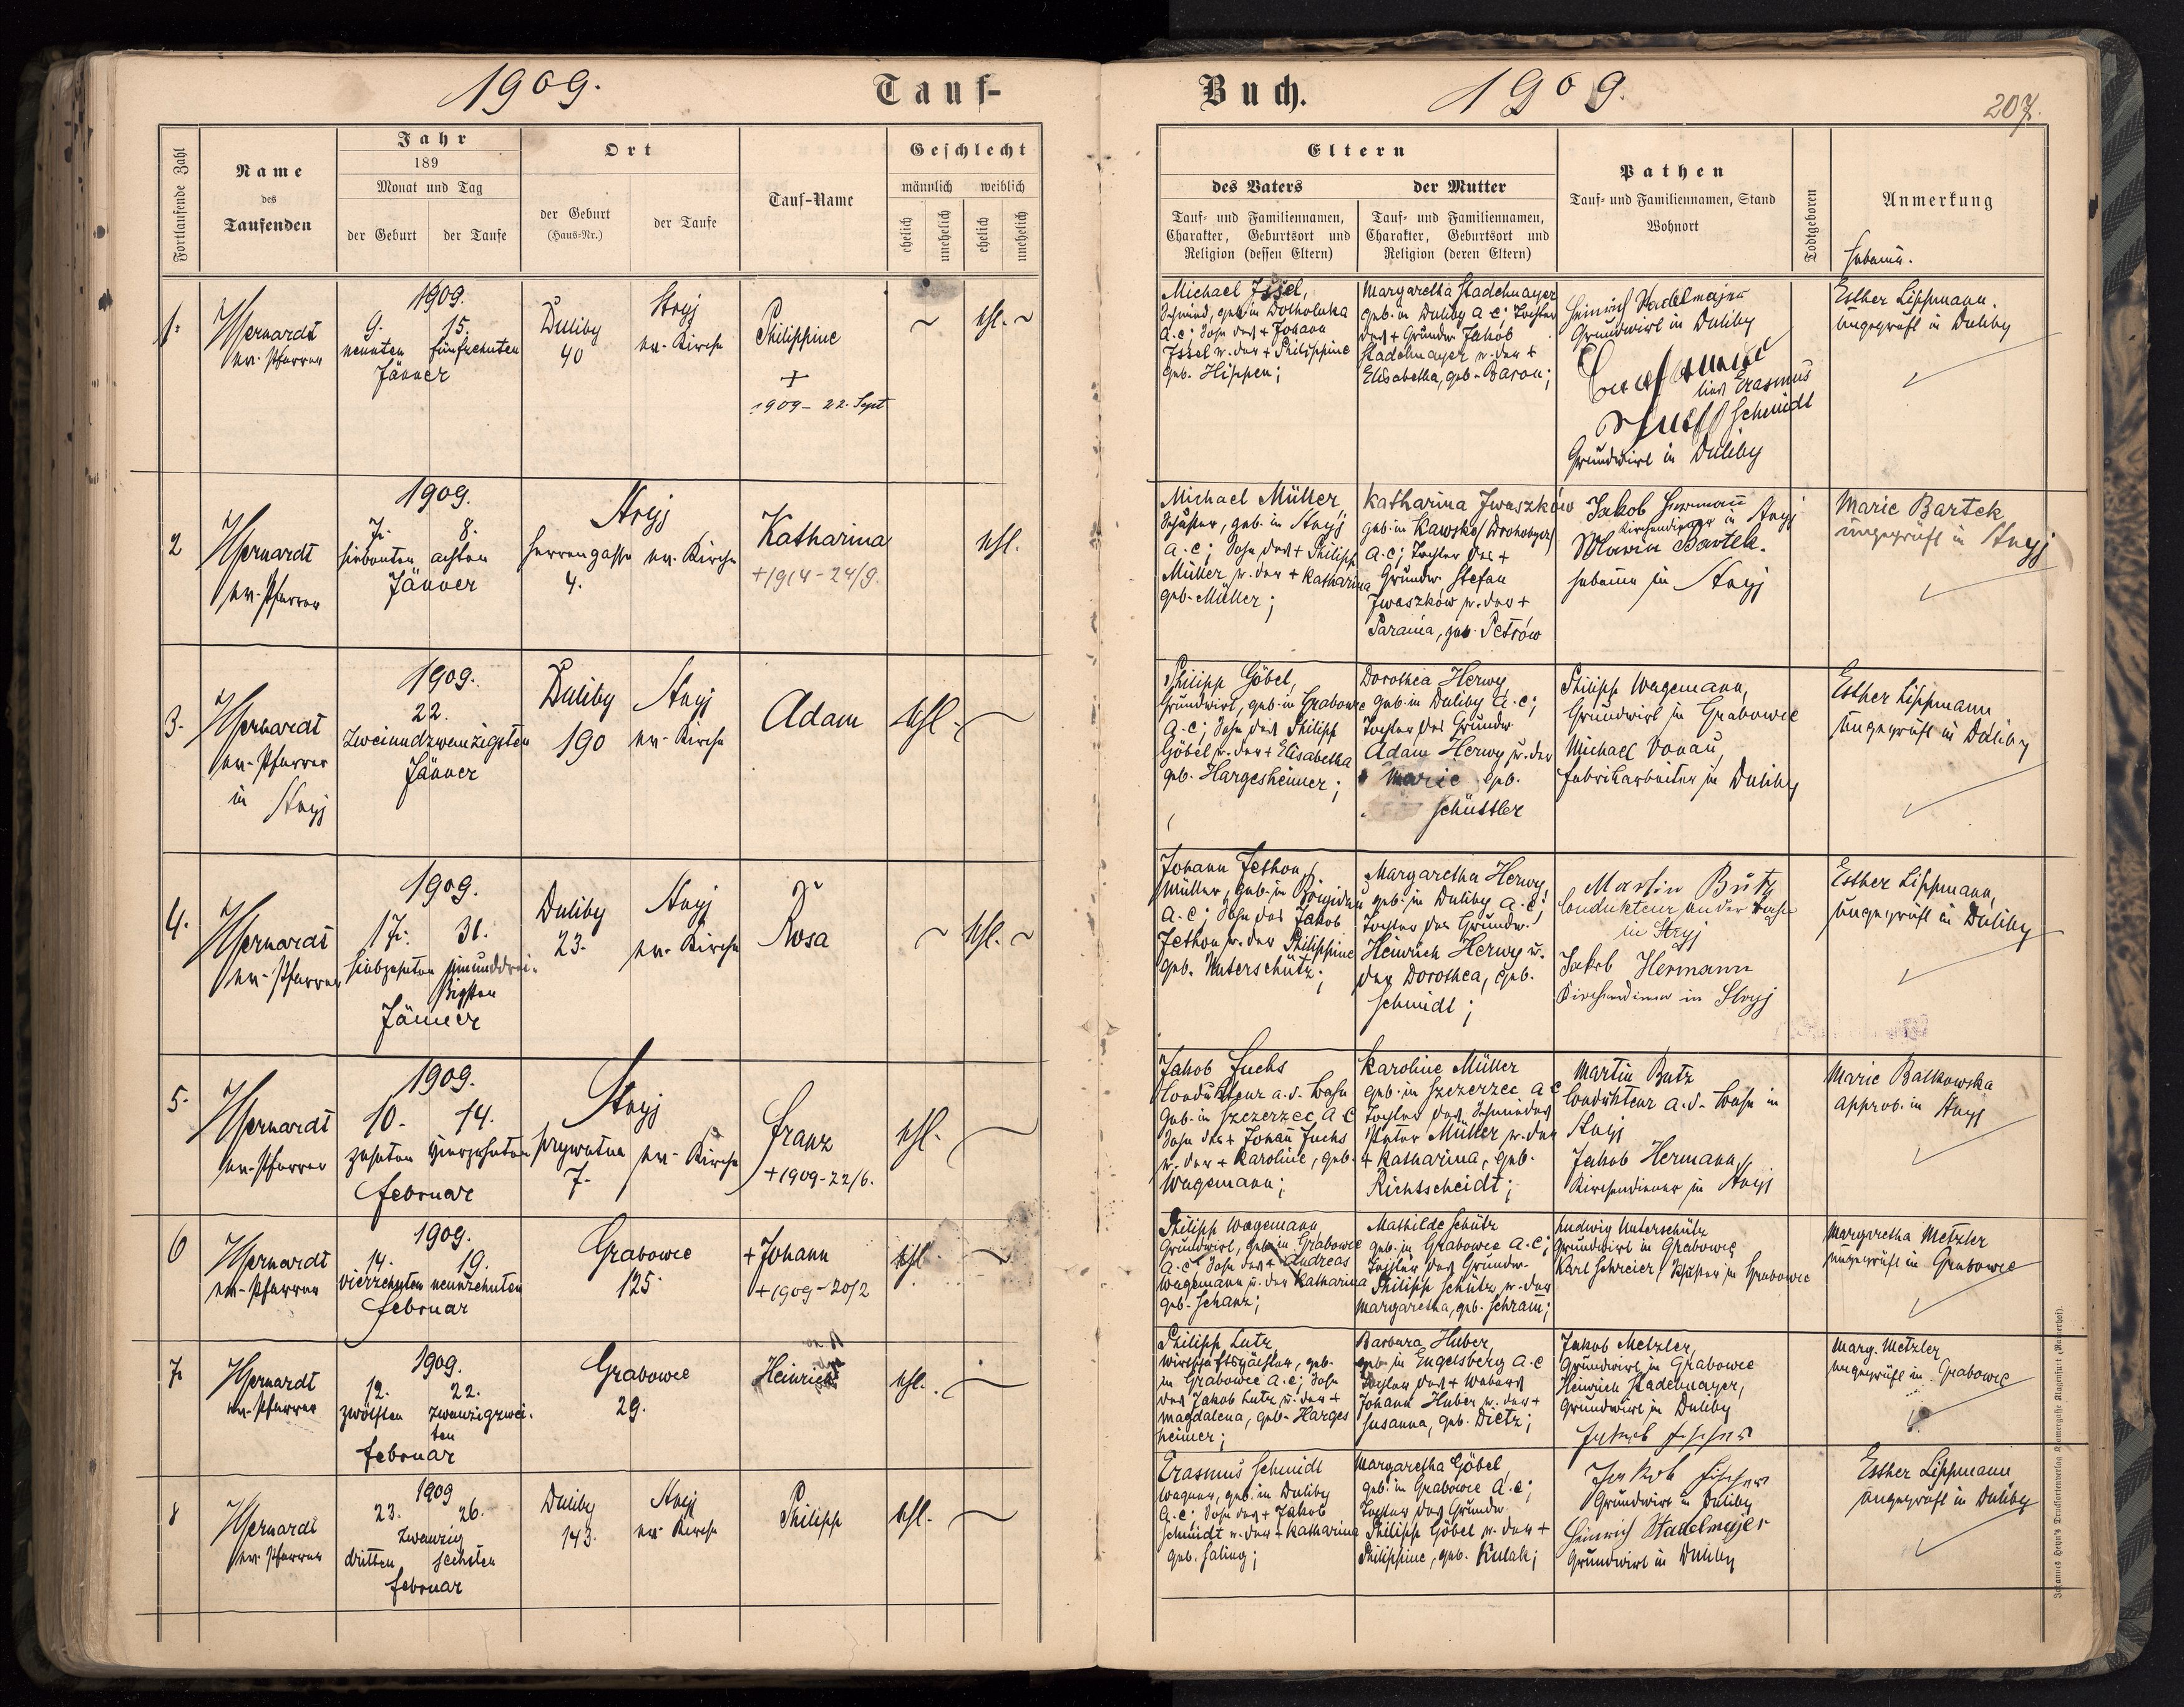 1909.
Tauf-
Fortlaufende Zahl
Name
des
Taufenden
Jahr
189
Monat und Tag
der Geburt
der Taufe
Ort
der Geburt
(Haus-Nr.)
der Taufe
Tauf-Name
Geschlecht
männlich
weiblich
ehelich
unehelich
ehelich
unehelich
1.
ev. Pfarrer
1909.
9. 15.
neunten fünfzehnten
Jänner
Duliby
40
Stryj
ev. Kirche
Philippine
+
1909 - 22. Sept
ehl.
2
ev. Pfarrer
1909.
7. 8.
siebenten achten
Jänner
Stryj
Herrengasse
4.
ev. Kirche
Katharina
+1914-24/9.
ehl.
3.
ev. Pfarrer
in Stryj
1909.
22.
Zweiundzwanzigsten
Jänner
Duliby
190
Stryj
ev. Kirche
Adam
ehl.
4.
ev. Pfarrer
1909.
17. 31.
siebzehnten einunddrei-
ßigsten
Jänner
Duliby
23.
Stryj
ev. Kirche
Rosa
ehl.
5.
ev. Pfarrer
1909.
10. 14.
zehnten vierzehnten
Februar
Stryj
7.
ev. Kirche
Franz
+1909-22/6.
ehl.
6
ev. Pfarrer
1909.
14. 19.
vierzehnten neunzehnten
Februar
Grabowce
125
+Johann
+1909-20/2
ehl.
7.
ev. Pfarrer
1909.
12. 22.
zwölften zwanzigzwei-
ten
Februar
Grabowce
29.
Heinrich
ehl.
8
ev. Pfarrer
1909
23. 26.
Zwanzig
dritten sechsten
Februar
Duliby
143.
Stryj
ev. Kirche
Philipp
ehl.
Buch.
1909.
207.
Eltern
des Vaters
Tauf- und Familiennamen,
Charakter, Geburtsort und
Religion (dessen Eltern)
der Mutter
Tauf- und Familiennamen,
Charakter, Geburtsort und
Religion (deren Eltern)
Pathen
Tauf- und Familiennamen, Stand
Wohnort
Todtgeboren
Anmerkung
Hebamme.
Michael Issel,
Schmied, geb. in
A.C; Sohn des + Johann
Issel u. der + Philippine
geb. Hippen;
Margaretha Stadelmayer
geb. in Duliby A.C; Tochter
des + Grundw. Jakob
Stadelmayer u. der +
Elisabetha, geb. Baron;
Heinrich Stadelmajer
Grundwirt in Duliby
Erasmus
Schmidt
Grundwirt in Duliby
Esther Lippmann.
ungeprüft in Duliby
Michael Müller,
Schuster, geb. in Stryj
A.C; Sohn des + Philipp
Müller u. der + Katharina
geb. Müller;
Katharina Iwaszków
geb. in Kawsko
A.C; Tochter des +
Grundw. Stefan
Iwaszków u. der +
geb. Petrów
Jakob Hermann
Kirchendiener in Stryj
Maria Bartek.
Hebamme in Stryj
Marie Bartek
ungeprüft in Stryj
Philipp Göbel,
Grundwirt, geb. in Grabowce
A.C; Sohn des Philipp
Göbel u. der + Elisabetha
geb. Hargesheimer;
Dorothea Herwy
geb. in Duliby A.C;
Tochter des Grundw.
Adam Herwy u. der
Marie geb.
Schüttler
Philipp Wagemann,
Grundwirt in Grabowce
Michael Donau,
Fabrikarbeiter in Duliby
Esther Lippmann
ungeprüft in Duliby
Johann Jethon,
Müller, geb. in Brigidau
A.C; Sohn des Jakob
Jethon u. der Philippine
geb. Unterschütz;
Margaretha Herwy,
geb. in Duliby A.C;
Tochter des Grundw.
Heinrich Herwy u.
der Dorothea, geb.
Schmidt;
Martin Butz
Condukteur an der Bahn
in Stryj
Jakob Hermann
Kirchendiener in Stryj
Esther Lippmann,
ungeprüft in Duliby
Jakob Fuchs
Condukteur a.d. Bahn
geb. in Szczerzec A C
Sohn des + Johann Fuchs
u. der + Karoline, geb.
Wagemann;
Karoline Müller
geb. in Szczerzec A C
Tochter des Schmiedes
Peter Müller u. der
+ Katharina, geb.
Richtscheidt;
Martin Butz
Condukteur a.d. Bahn in
Stryj
Jakob Hermann,
Kirchendiener in Stryj
Marie Balkowska
approb. in Stryj
Philipp Wagemann
Grundwirt, geb. in Grabowce
A.C; Sohn des + Andreas
Wagemann u. der Katharina
geb. Schanz;
Mathilde Schütz
geb. in Grabowce A.C;
Tochter des Grundw.
Philipp Schütz u. der
Margaretha, geb. Schram;
Ludwig Unterschütz
Grundwirt in Grabowce
Karl Schreier, Schuster in Grabowce
Margaretha Metzler
ungeprüft in Grabowce
Philipp Lutz,
Wirtschaftspächter, geb.
in Grabowce A.C; Sohn
des Jakob Lutz u. der +
Magdalena, geb. Harges
heimer;
Barbara Huber,
geb. in Engelsberg A.C
Tochter des + Webers
Johann Huber u. der +
Susanna, geb. Dietz;
Jakob Metzler,
Grundwirt in Grabowce
Heinrich Stadelmayer,
Grundwirt in Duliby
Jakob Fischer
Marg. Metzler
ungeprüft in Grabowce
Erasmus Schmidt
Wagner, geb. in Duliby
A.C; Sohn des + Jakob
Schmidt u. der + Katharina
geb. Saling;
Margaretha Göbel
geb. in Grabowce A.C;
Tochter des Grundw.
Philipp Göbel u. der +
Philippine, geb. Kulak;
Jakob Fischer
Grundwirt in Duliby
Heinrich Stadelmajer
Grundwirt in Duliby
Esther Lippmann
ungeprüft in Duliby